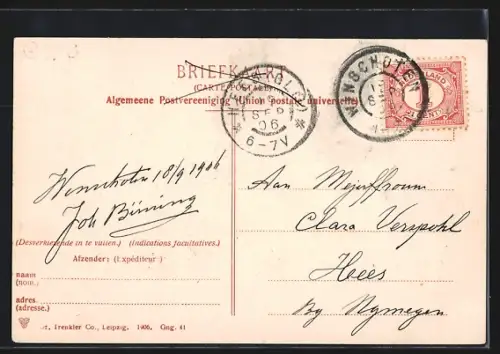 BRIEFKAART
(CARTE POSTALE)
Algemeene Postvereeniging Union postale universelle
SEP
06
6-7V
WINSCHOTEN
NEDERLAND
1
CENT
Winschoten 18/9 1906
Joh Büning
(Desverkiezende in te vullen.) (Indications facultatives.)
Afzender: (Expéditeur)
naam
(nom.)
adres
(adresse.)
Trenkler Co., Leipzig. 1906. Gng. 41
Aan Mejuffrouw
Clara Verspohl
Hees
By Nymegen